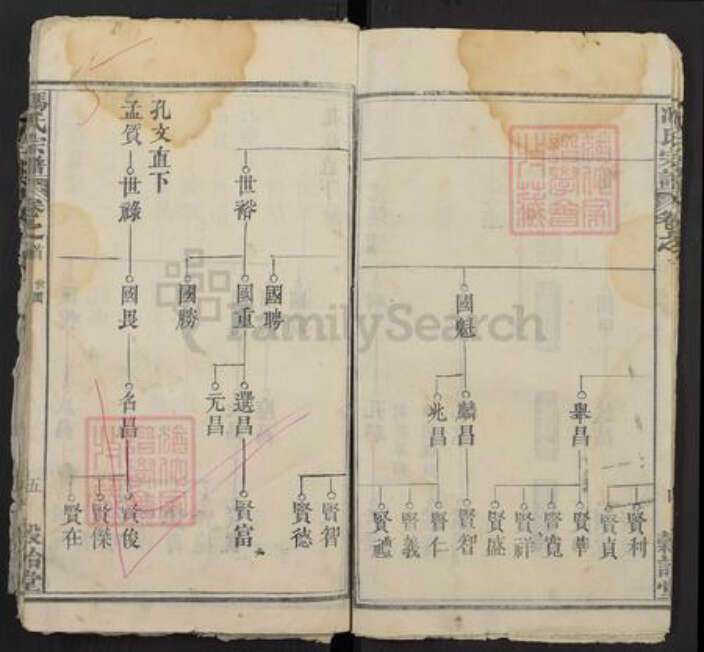 國魁
舉昌
麟昌
兆昌
賢利
賢貞
賢華
賢寬
賢祥
賢盛
賢智
賢仁
賢義
賢禮
世裕
孔文直下
孟質
世祿
國聘
國重
國勝
國畏
選昌
元昌
名昌
賢智
賢德
賢富
賢俊
賢傑
賢在
馮氏宗譜
卷之首
五
FamilySearch